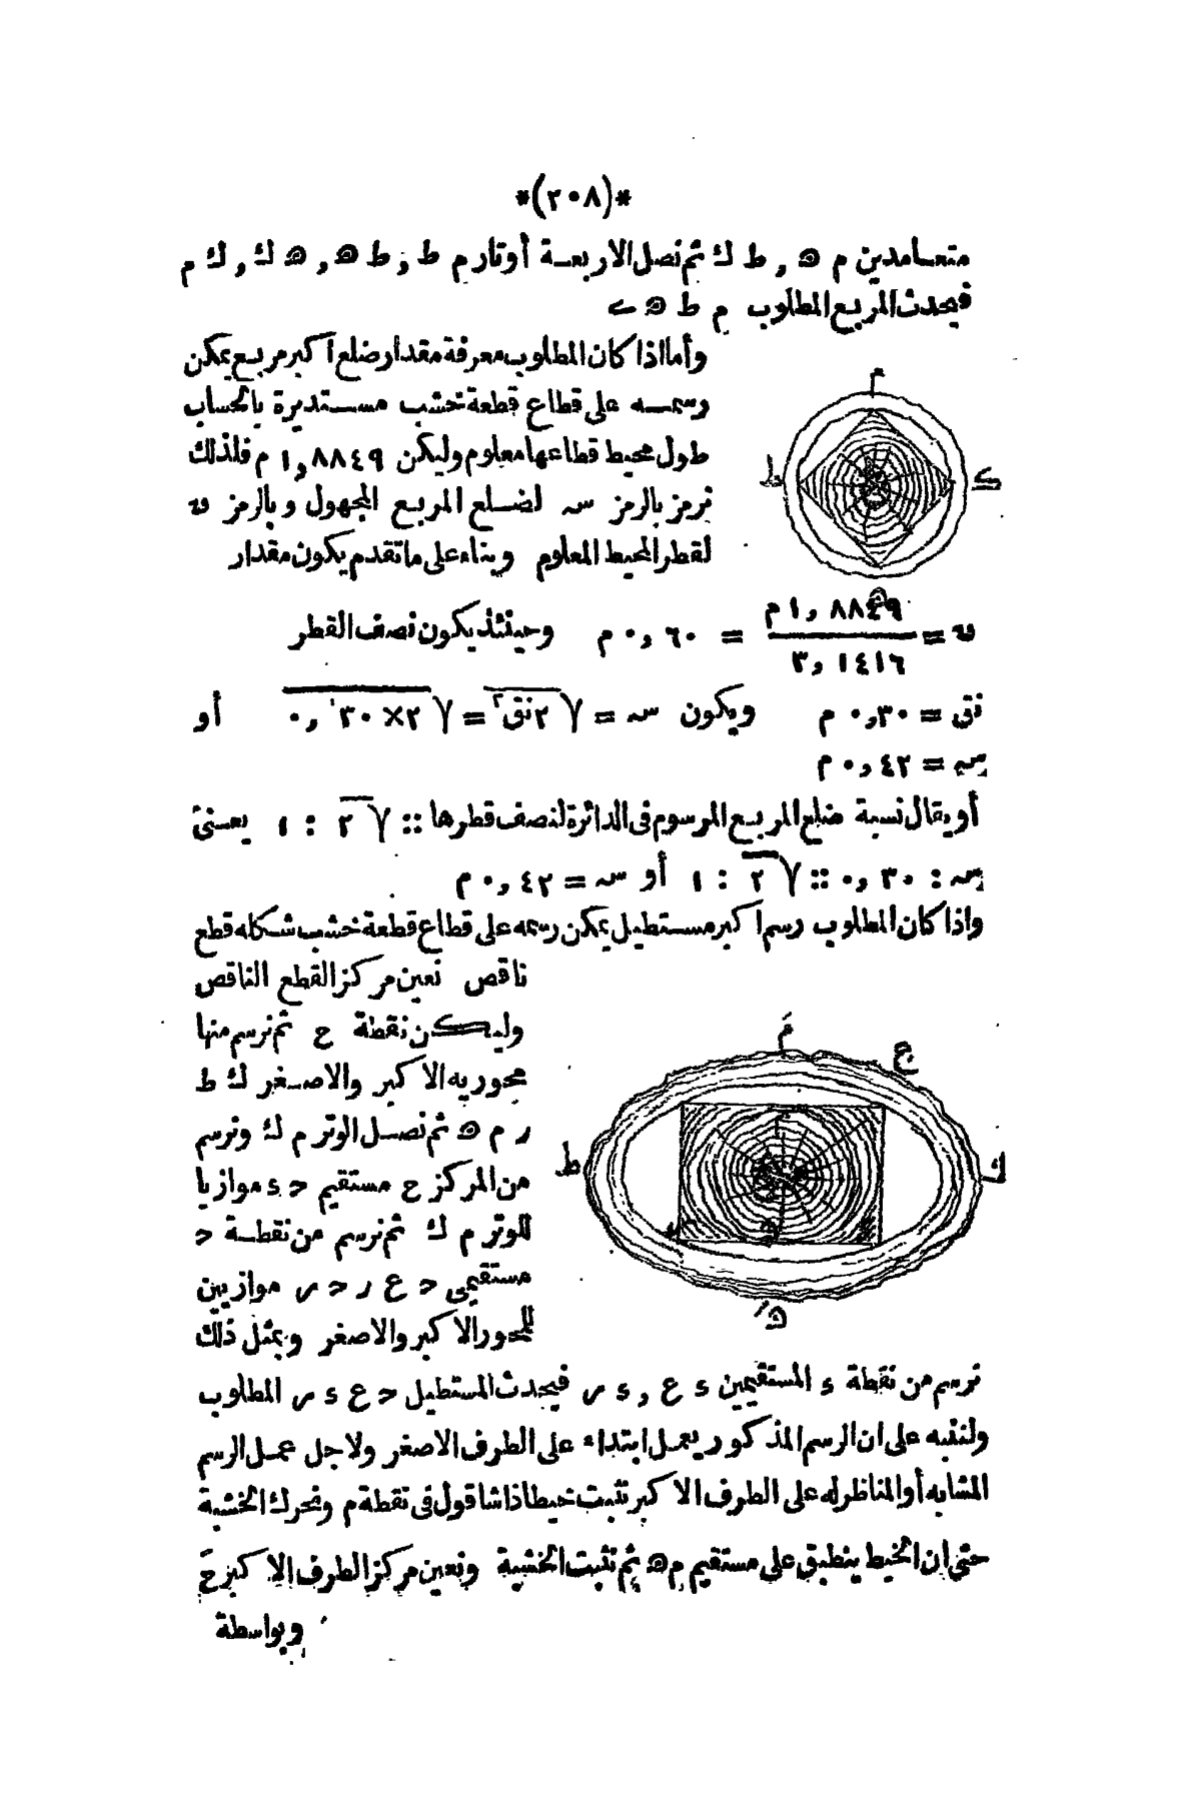 *(٢٠٨)*
متعامدين م ه , ط ك ثم نصل الاربعة أوتار م ط , ط ه , ه ك , ك م
فيحدث المربع المطلوب م ط ه ك
وأما اذا كان المطلوب معرفة مقدار ضلع أكبر مربع يمكن
رسمه على قطاع قطعة خشب مستديرة بالحساب
طول محيط قطاعها معلوم وليكن ١,٨٨٤٩ م فلذلك
نرمز بالرمز سه لضلع المربع المجهول وبالرمز ق
لقطر المحيط المعلوم وبناء على ما تقدم يكون مقدار
ق = ١,٨٨٤٩ م / ٣,١٤١٦ = ٠,٦٠ م وحينئذ يكون نصف القطر
نق = ٠,٣٠ م ويكون سه = √٢نق٢ = √٢×٠,٣٠٢ أو
سه = ٠,٤٢ م
أو يقال نسبة ضلع المربع المرسوم فى الدائرة لنصف قطرها :: √٢ : ١ يعنى
سه : ٠,٣٠ :: √٢ : ١ أو سه = ٠,٤٢ م
واذا كان المطلوب رسم أكبر مستطيل يمكن رسمه على قطاع قطعة خشب شكله قطع
ناقص نعين مركز القطع الناقص
وليكن نقطة ح ثم نرسم منها
محوريه الاكبر والاصغر ك ط
ر م ه ثم نصل الوتر م ك ونرسم
من المركز ح مستقيم د ء موازيا
للوتر م ك ثم نرسم من نقطة د
مستقيمى د ع ر د س موازيين
للمحور الاكبر والاصغر وبمثل ذلك
نرسم من نقطة ء المستقيمين ء ع , ء س فيحدث المستطيل د ع ء س المطلوب
ولننبه على ان الرسم المذكور يعمل ابتداء على الطرف الاصغر ولاجل عمل الرسم
المشابه أو المناظر له على الطرف الاكبر نثبت خيطا ذا شاقول فى نقطة م ونحرك الخشبة
حتى ان الخيط ينطبق على مستقيم م ه ثم نثبت الخشبة ونعين مركز الطرف الاكبر حَ
وبواسطة
م
ط
ك
ه
مَ
ع
ط
ك
هَ